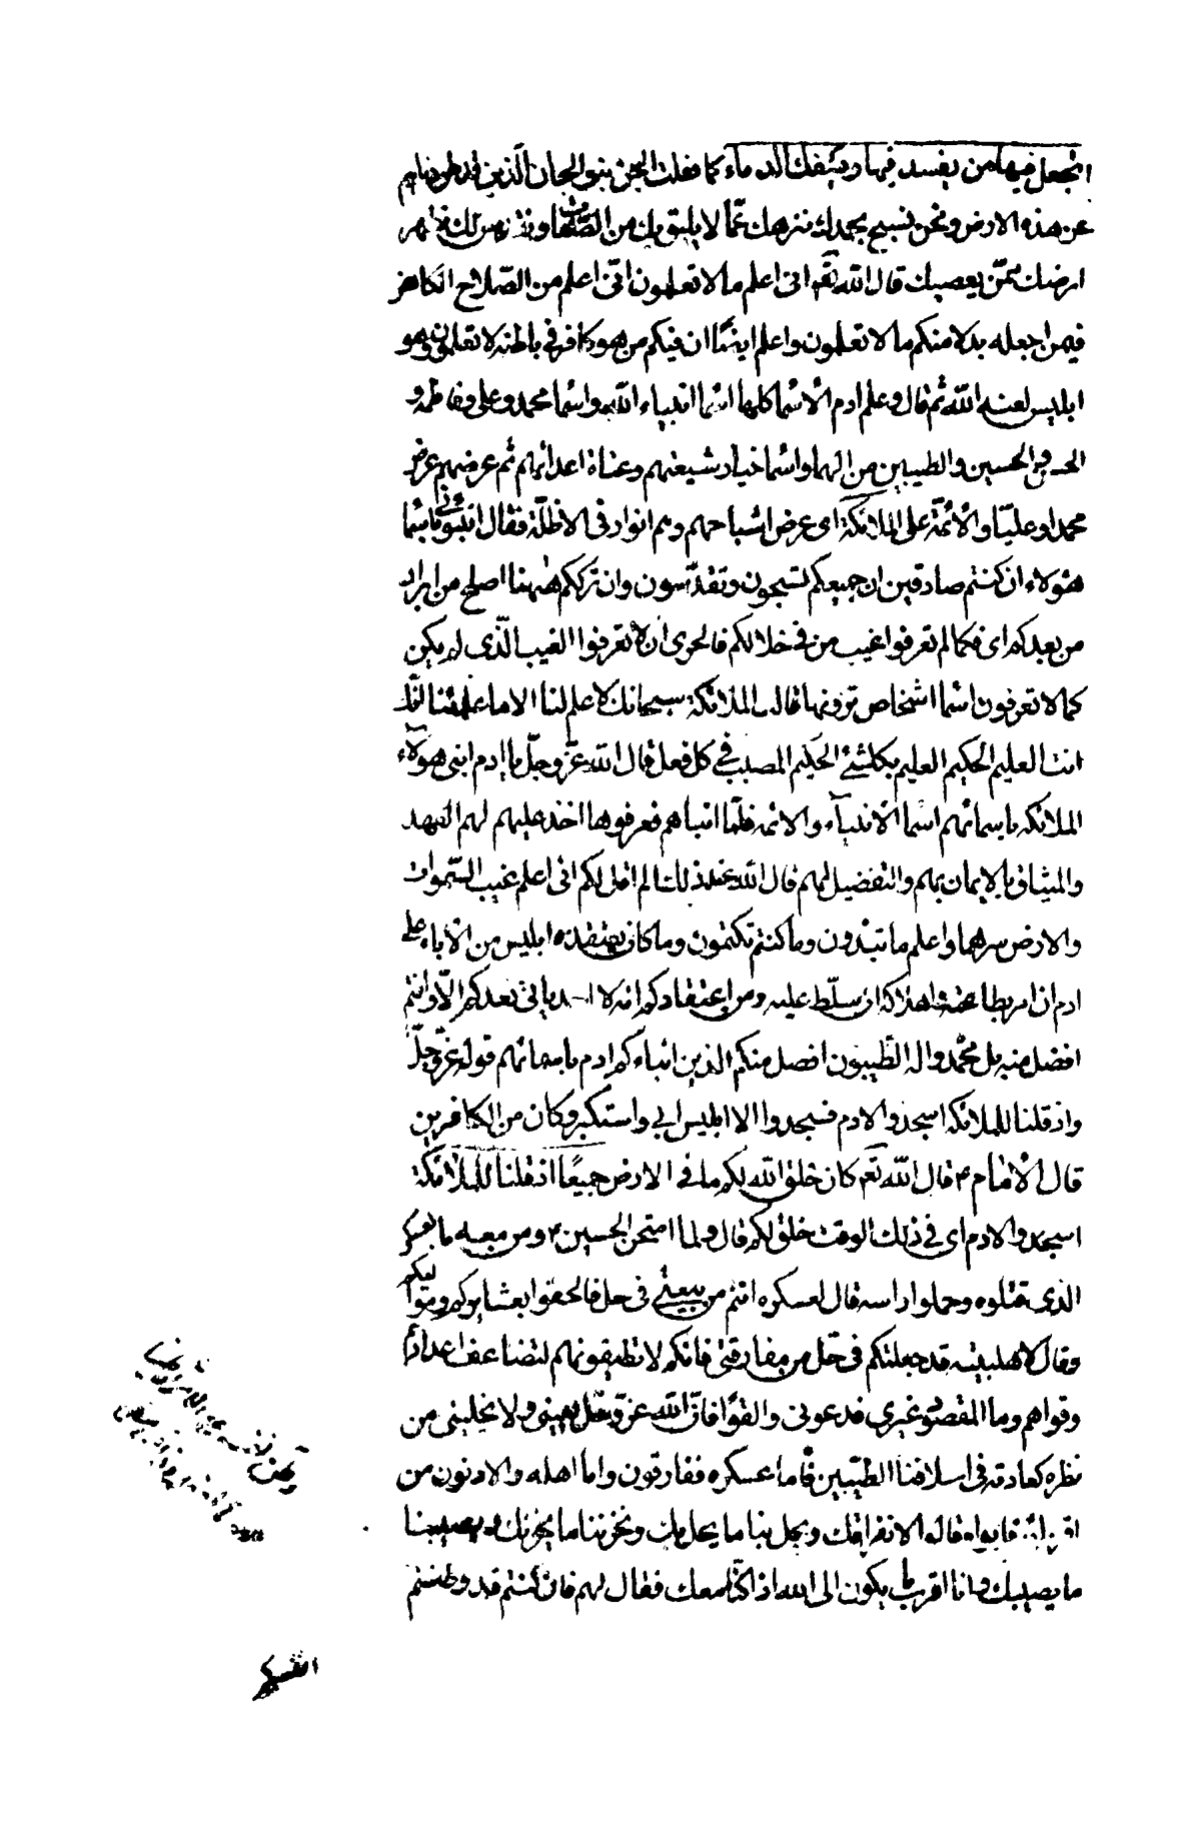 اتجعل فيها من يفسد فيها ويسفك الدماء كما فعلت الجن بنو الجان الذين قد طردناهم
عن هذه الارض ونحن نسبح بحمدك ننزهك عما لا يليق بك من الصفات ونقدس لك نطهر
ارضك ممن يعصيك قال الله تعم انى اعلم ما لا تعلمون انى اعلم من الصلاح الكاهن
فيمن اجعله بدلا منكم ما لا تعلمون واعلم ايضًا ان فيكم من هو كافر فى باطنه لا تعلمونه وهو
ابليس لعنه الله ثم قال وعلم ادم الاسما كلها اسما انبياء الله واسما محمد وعلى وفاطمه و
الحسن والحسين والطيبين من الهما واسما خيار شيعتهم وعتاة اعدائهم ثم عرضهم عرض
محمدا وعليّا والائمّة على الملائكة اى عرض اشباحهم وهم انوار فى الاظلّة فقال انبئونى باسما
هؤلاء ان كنتم صادقين ان جميعكم تسبحون وتقدّسون وان ترككم ههنا اصلح من ايراد
من بعدكم اى فكما لم تعرفوا غيب من فى خلالكم فالحرى ان لا تعرفوا الغيب الّذى لم يكن
كما لا تعرفون اسما اشخاص ترونها قالت الملائكة سبحانك لا علم لنا الا ما علمتنا انّك
انت العليم الحكيم العليم بكلشئ الحكيم المصيب فى كل فعل قال الله عزّ وجلّ يا ادم انبئ هولآء
الملائكه باسمائهم اسما الانبيآء والائمه فلمّا انباهم فعرفوها اخذ عليهم لهم العهد
والميثاق بالايمان بهم والتفضيل لهم قال الله عند ذلك الم اقل لكم انى اعلم غيب السّموات
والارض سرهما واعلم ما تبدون وما كنتم تكتمون وما كان يعتقده ابليس من الاباء على
ادم ان امر بطاعته واهلاكه ان سلّط عليه ومن اعتقادكم انه لا احد ياتى بعدكم الّا وانتم
افضل منه بل محمّد واله الطّيبون افضل منكم الذين انباءكم ادم باسمائهم قوله عزّ وجلّ
واذ قلنا للملائكه اسجدوا لادم فسجدوا الا ابليس ابى واستكبر وكان من الكافرين
قال الامام ٤ قال الله تعم كان خلق الله لكم ما فى الارض جميعًا اذ قلنا للملائكة
اسجدوا لادم اى فى ذلك الوقت خلق لكم قال ولما امتحن الحسين ٤ ومن معه بالعسكر
الذى قتلوه وحملوا راسه قال لعسكره انتم من بيعتى فى حل فالحقوا بعشايركم ومواليكم
وقال لاهلبيته قد جعلتكم فى حّل من مفارقتى فانكم لا تطيقونهم لتضاعف اعدادهم
وقواهم وما المقصود غيرى فدعونى والقوم فانّ الله عزّ وجّل يعيننى ولا يخلينى من
نظره كعادته فى اسلافنا الطيّبين فاما عسكره ففارقون واما اهله والادنون من
اقربائه فابوا وقالوا لا نفارقك ويحل بنا ما يحل بك ويحزننا ما يحزنك ويصيبنا
ما يصيبك وانا اقرب ما يكون الى الله اذا كنّا معك فقال لهم فان كنتم قد وطنتم
انفسكم